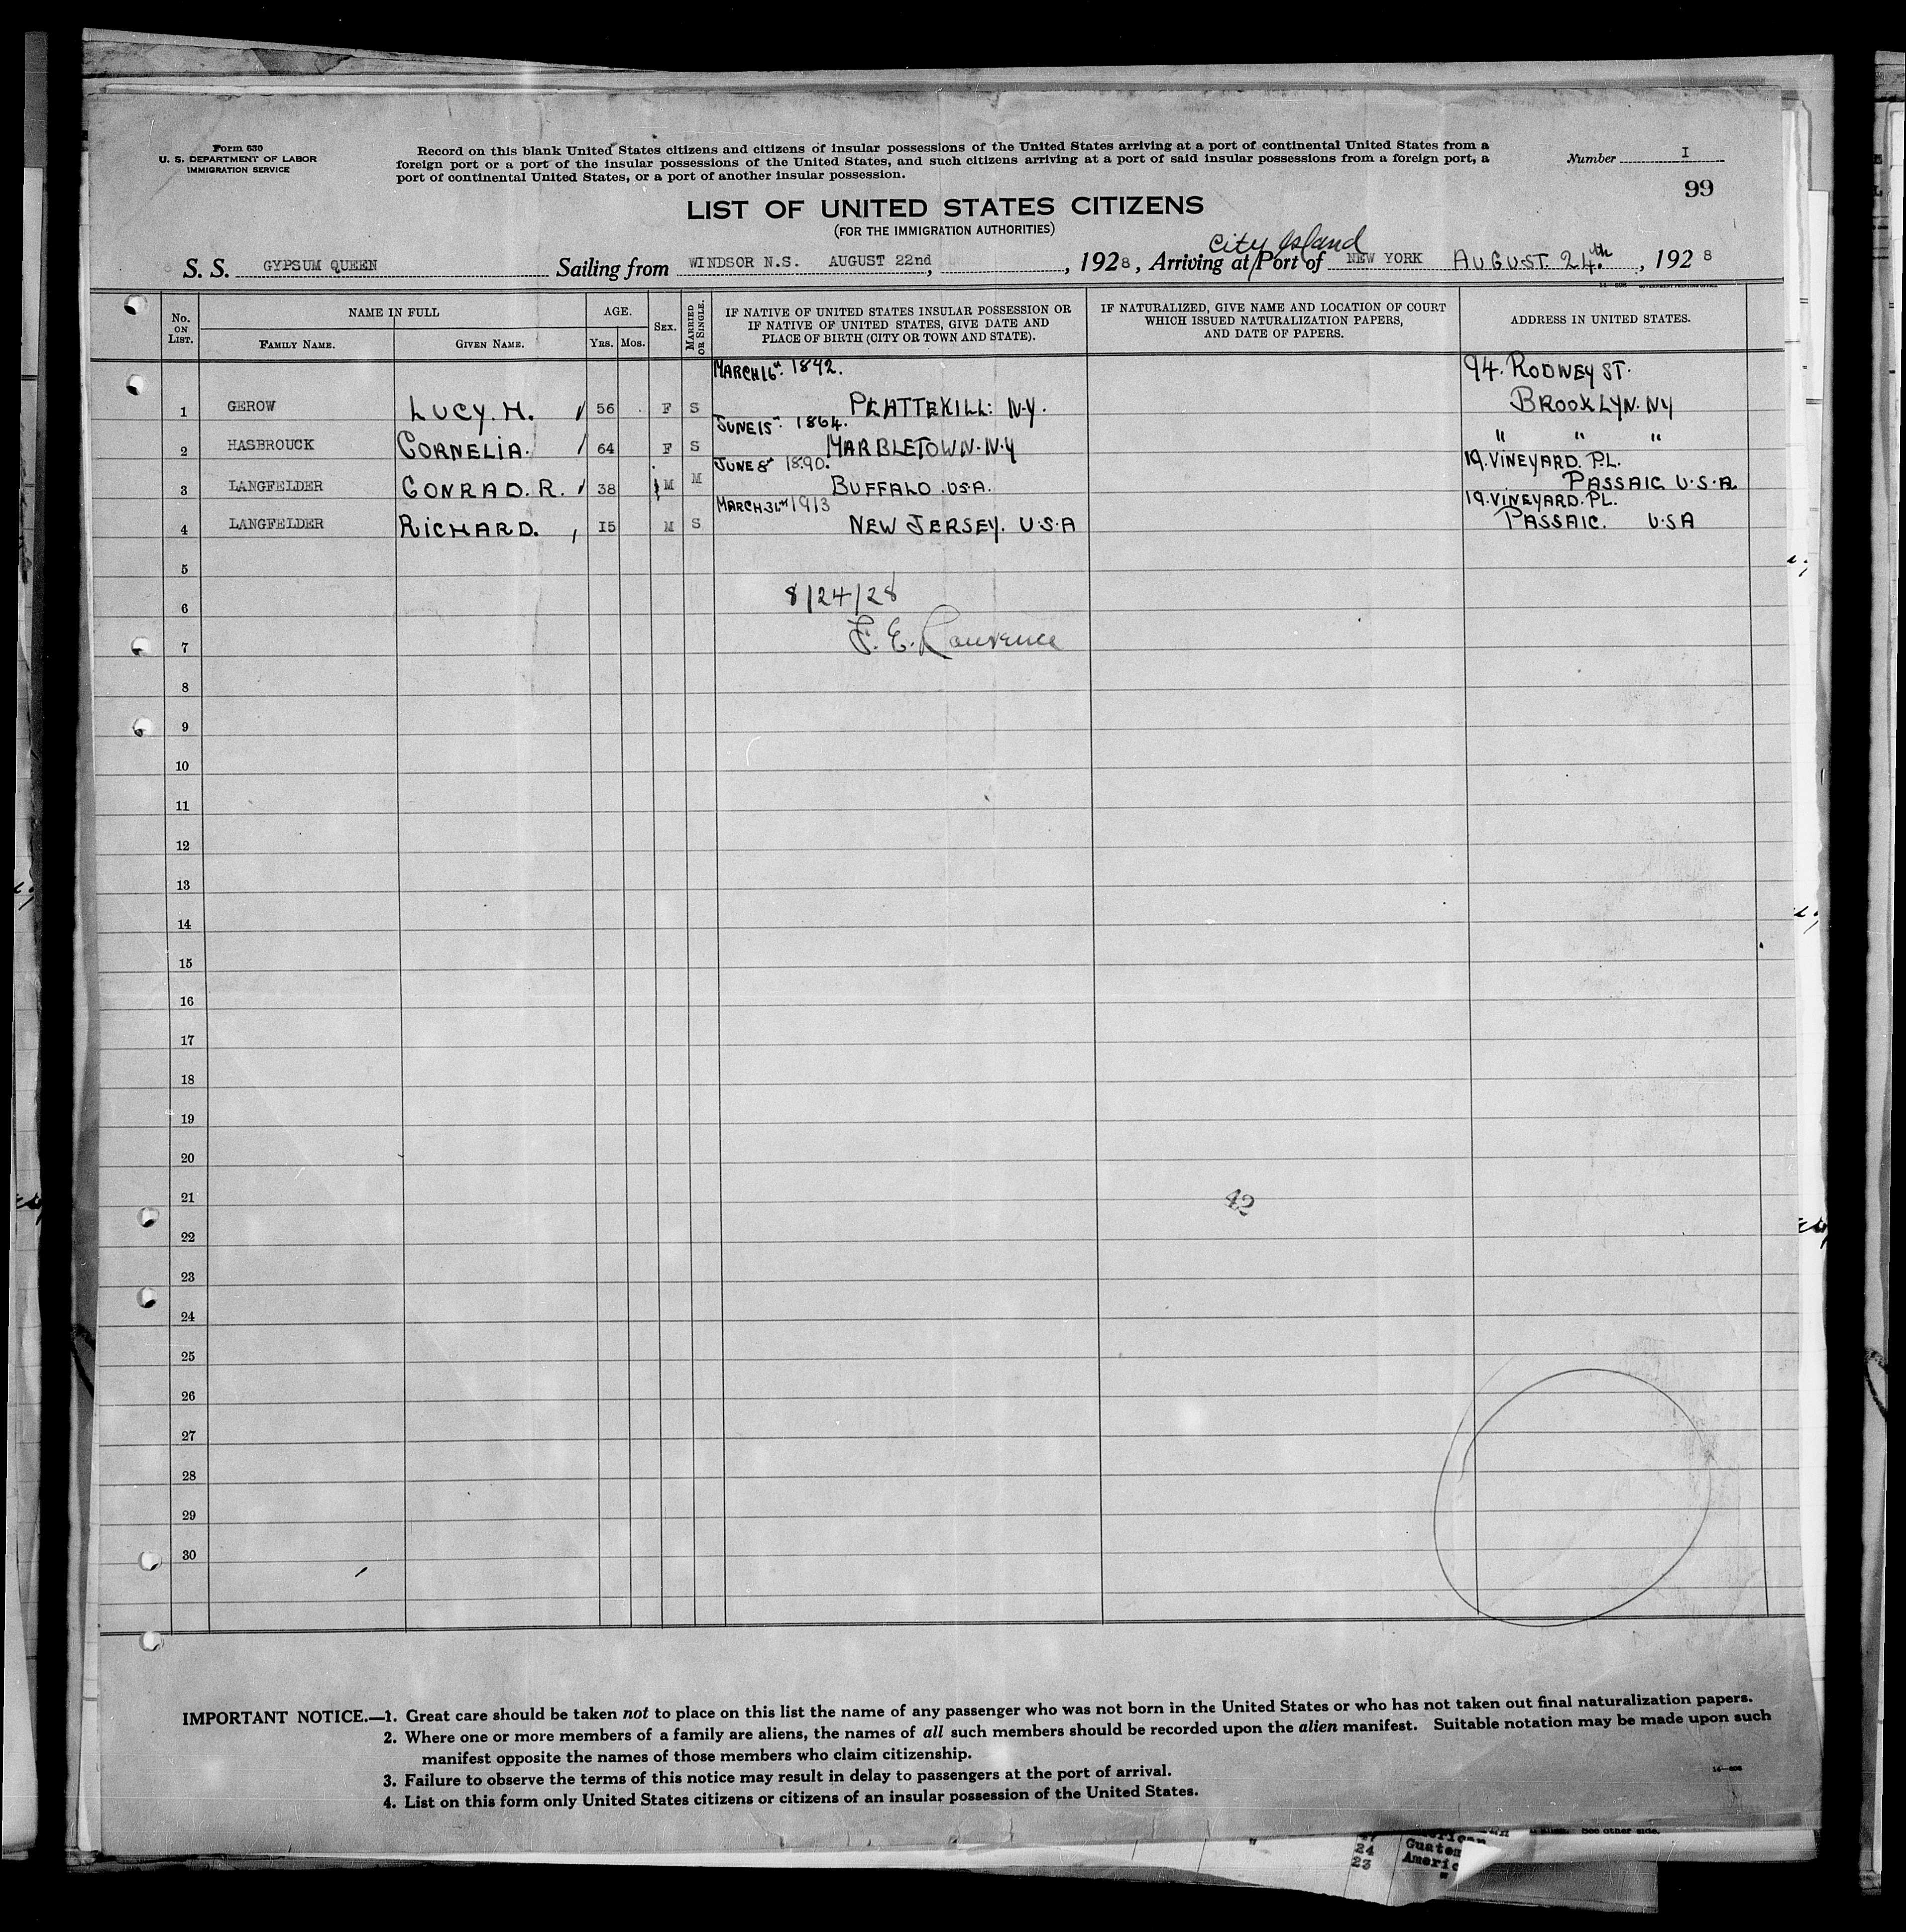 Form 630
U. S. DEPARTMENT OF LABOR
IMMIGRATION SERVICE
Record on this blank United States citizens and citizens of insular possessions of the United States arriving at a port of continental United States from a
foreign port or a port of the insular possessions of the United States, and such citizens arriving at a port of said insular possessions from a foreign port, a
port of continental United States, or a port of another insular possession.
Number I
99
LIST OF UNITED STATES CITIZENS
(FOR THE IMMIGRATION AUTHORITIES)
City Island
S. S. GYPSUM QUEEN Sailing from WINDSOR N.S. AUGUST 22nd, , 1928, Arriving at Port of NEW YORK AUGUST. 24th, 1928
No. ON LIST. NAME IN FULL AGE. SEX. MARRIED OR SINGLE. IF NATIVE OF UNITED STATES INSULAR POSSESSION OR IF NATIVE OF UNITED STATES, GIVE DATE AND PLACE OF BIRTH (CITY OR TOWN AND STATE). IF NATURALIZED, GIVE NAME AND LOCATION OF COURT WHICH ISSUED NATURALIZATION PAPERS, AND DATE OF PAPERS. ADDRESS IN UNITED STATES.
FAMILY NAME. GIVEN NAME. YRS. MOS.
MARCH 16th. 1842. 94. RODNEY ST.
1 GEROW LUCY. H. 56 F S PLATTEKILL: N.Y. BROOKLYN. NY
JUNE 15th. 1864.
2 HASBROUCK CORNELIA. 64 F S MARBLETOWN. N.Y " " "
JUNE 8th 1890. 19. VINEYARD. PL.
3 LANGFELDER CONRAD. R. 38 M M BUFFALO. U.S.A. PASSAIC U.S.A.
MARCH 31st 1913 19. VINEYARD. PL.
4 LANGFELDER RICHARD. 15 M S NEW JERSEY. U.S.A PASSAIC. U.S A
5
6 8/24/28
7 F. E. Lawrence
8
9
10
11
12
13
14
15
16
17
18
19
20
21 42
22
23
24
25
26
27
28
29
30
IMPORTANT NOTICE.—1. Great care should be taken not to place on this list the name of any passenger who was not born in the United States or who has not taken out final naturalization papers.
2. Where one or more members of a family are aliens, the names of all such members should be recorded upon the alien manifest. Suitable notation may be made upon such
manifest opposite the names of those members who claim citizenship.
3. Failure to observe the terms of this notice may result in delay to passengers at the port of arrival.
4. List on this form only United States citizens or citizens of an insular possession of the United States.
See other side.
24
23